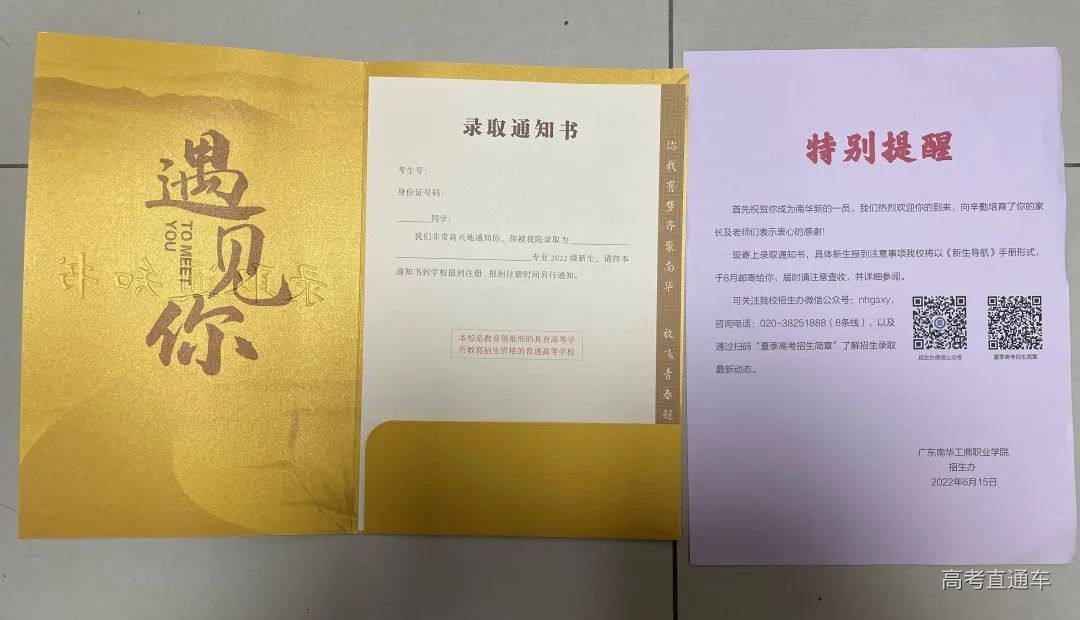 遇见你
TO MEET
YOU
录取通知书
录取通知书
考生号：
身份证号码：
________同学：
我们非常高兴地通知你，你被我院录取为______________
______________________________专业 2022 级新生，请持本
通知书到学校报到注册，报到注册时间另行通知。
本校是教育部批准的具有高等学
历教育招生资格的普通高等学校
你我有梦齐聚南华
放飞青春超
特别提醒
首先祝贺你成为南华新的一员，我们热烈欢迎你的到来，向辛勤培育了你的家
长及老师们表示衷心的感谢！
现寄上录取通知书，具体新生报到注意事项我校将以《新生导航》手册形式，
于8月邮寄给你，届时请注意查收，并详细参阅。
可关注我校招生办微信公众号：nhgsxy，
咨询电话：020-38251888（8条线），以及
通过扫码“夏季高考招生简章”了解招生录取
最新动态。
招生办微信公众号
夏季高考招生简章
广东南华工商职业学院
招生办
2022年6月15日
高考直通车